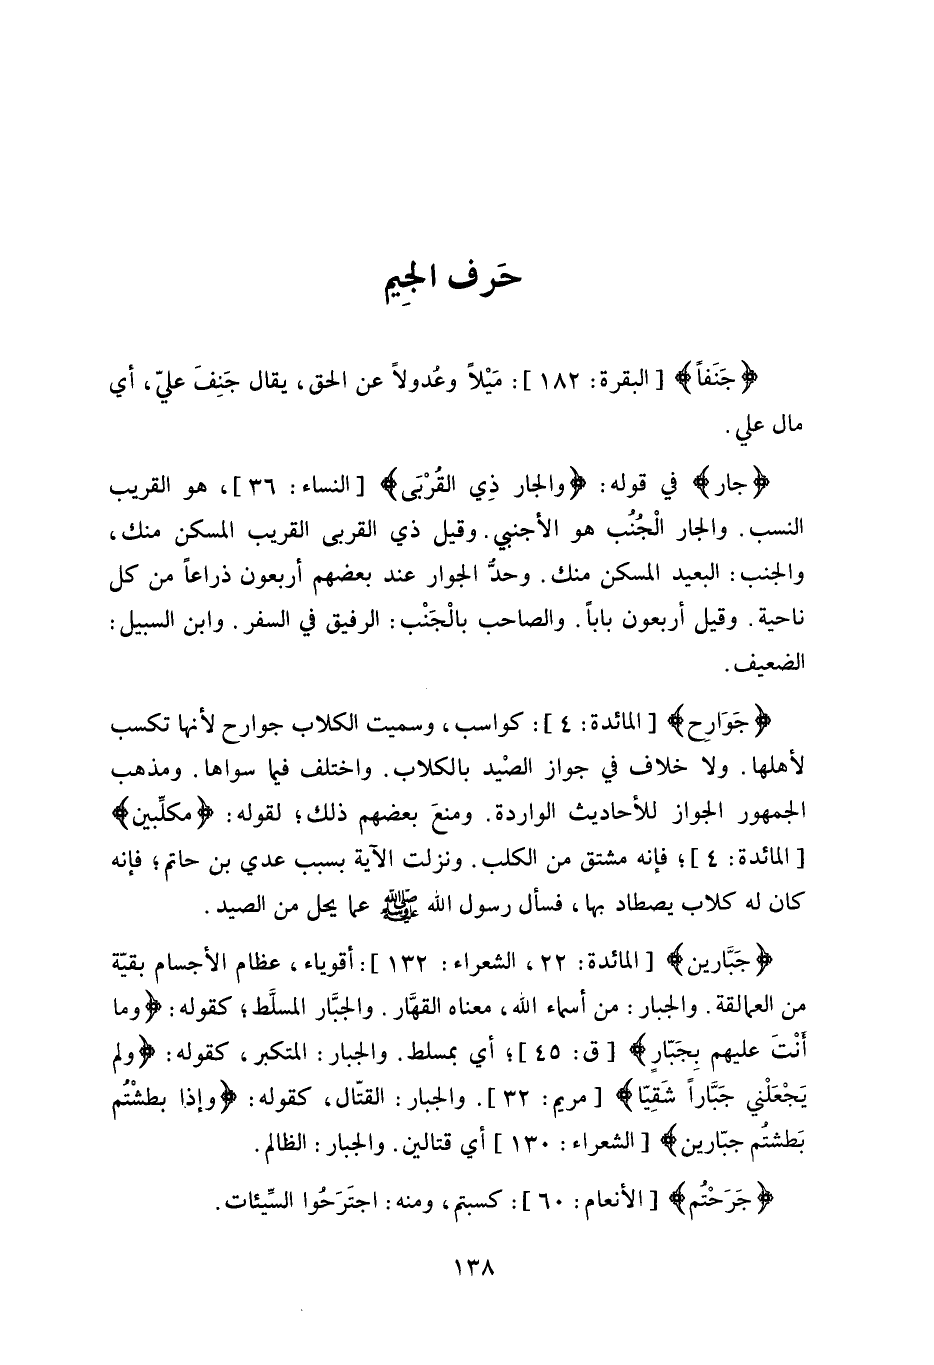 حَرف الجِيم
﴿جَنَفاً﴾ [البقرة: ١٨٢]: مَيْلاً وعُدولاً عن الحق، يقال جَنِفَ عليّ، أي
مال علي.
﴿جار﴾ في قوله: ﴿والجار ذِي القُرْبَى﴾ [النساء: ٣٦]، هو القريب
النسب. والجار الْجُنُب هو الأجنبي. وقيل ذي القربى القريب المسكن منك،
والجنب: البعيد المسكن منك. وحدُّ الجوار عند بعضهم أربعون ذراعاً من كل
ناحية. وقيل أربعون باباً. والصاحب بالْجَنْب: الرفيق في السفر. وابن السبيل:
الضعيف.
﴿جَوَارِح﴾ [المائدة: ٤]: كواسب، وسميت الكلاب جوارح لأنها تكسب
لأهلها. ولا خلاف في جواز الصْيد بالكلاب. واختلف فيما سواها. ومذهب
الجمهور الجواز للأحاديث الواردة. ومنعَ بعضهم ذلك؛ لقوله: ﴿مكلِّبين﴾
[المائدة: ٤]؛ فإنه مشتق من الكلب. ونزلت الآية بسبب عدي بن حاتم؛ فإنه
كان له كلاب يصطاد بها، فسأل رسول الله ﷺ عما يحل من الصيد.
﴿جَبَّارين﴾ [المائدة: ٢٢، الشعراء: ١٣٢]: أقوياء، عظام الأجسام بقيّة
من العمالقة. والجبار: من أسماء الله، معناه القهَّار. والجبَّار المسلَّط؛ كقوله: ﴿وما
أَنْتَ عليهم بِجَبّارٍ﴾ [ق: ٤٥]؛ أي بمسلط. والجبار: المتكبر، كقوله: ﴿ولم
يَجْعَلْني جَبَّاراً شَقِيّا﴾ [مريم: ٣٢]. والجبار: القتّال، كقوله: ﴿وإذا بطشْتُم
بَطشتُم جبّارين﴾ [الشعراء: ١٣٠] أي قتالين. والجبار: الظالم.
﴿جَرَحْتُم﴾ [الأنعام: ٦٠]: كسبتم، ومنه: اجتَرَحُوا السِّيئات.
١٣٨